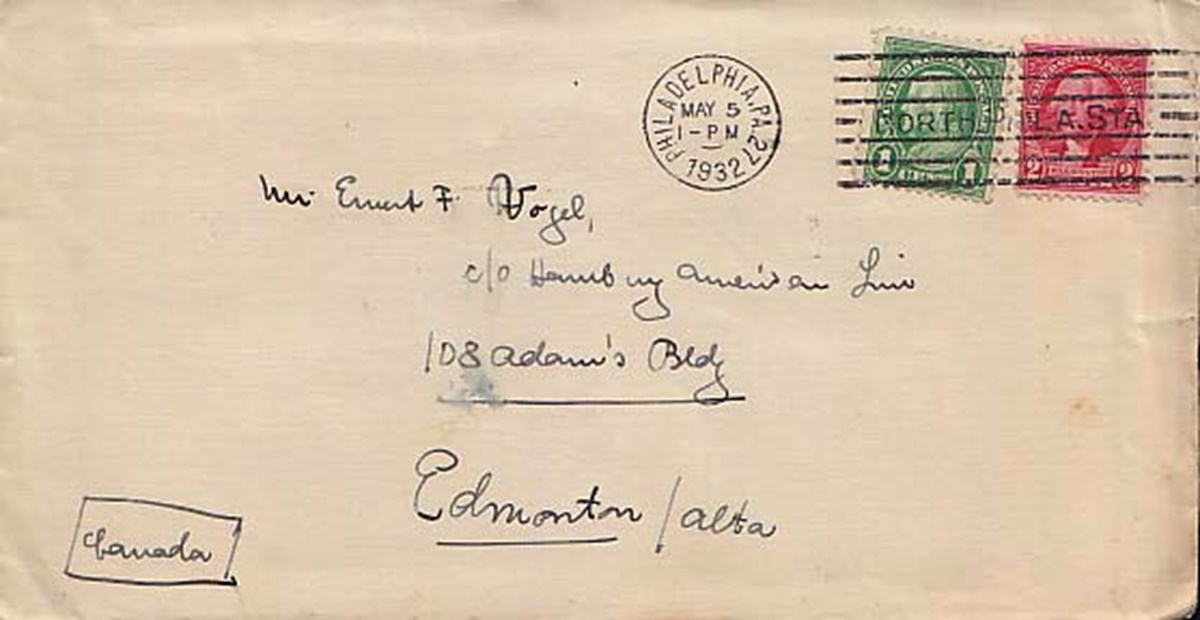 PHILADELPHIA, PA. 27
MAY 5
1-PM
1932
NORTH PHILA. STA.
1 1
2 2
Mr. Ernest F. Vogel,
c/o Hamburg American Line
108 Adam's Bldg
Edmonton / Alta
Canada